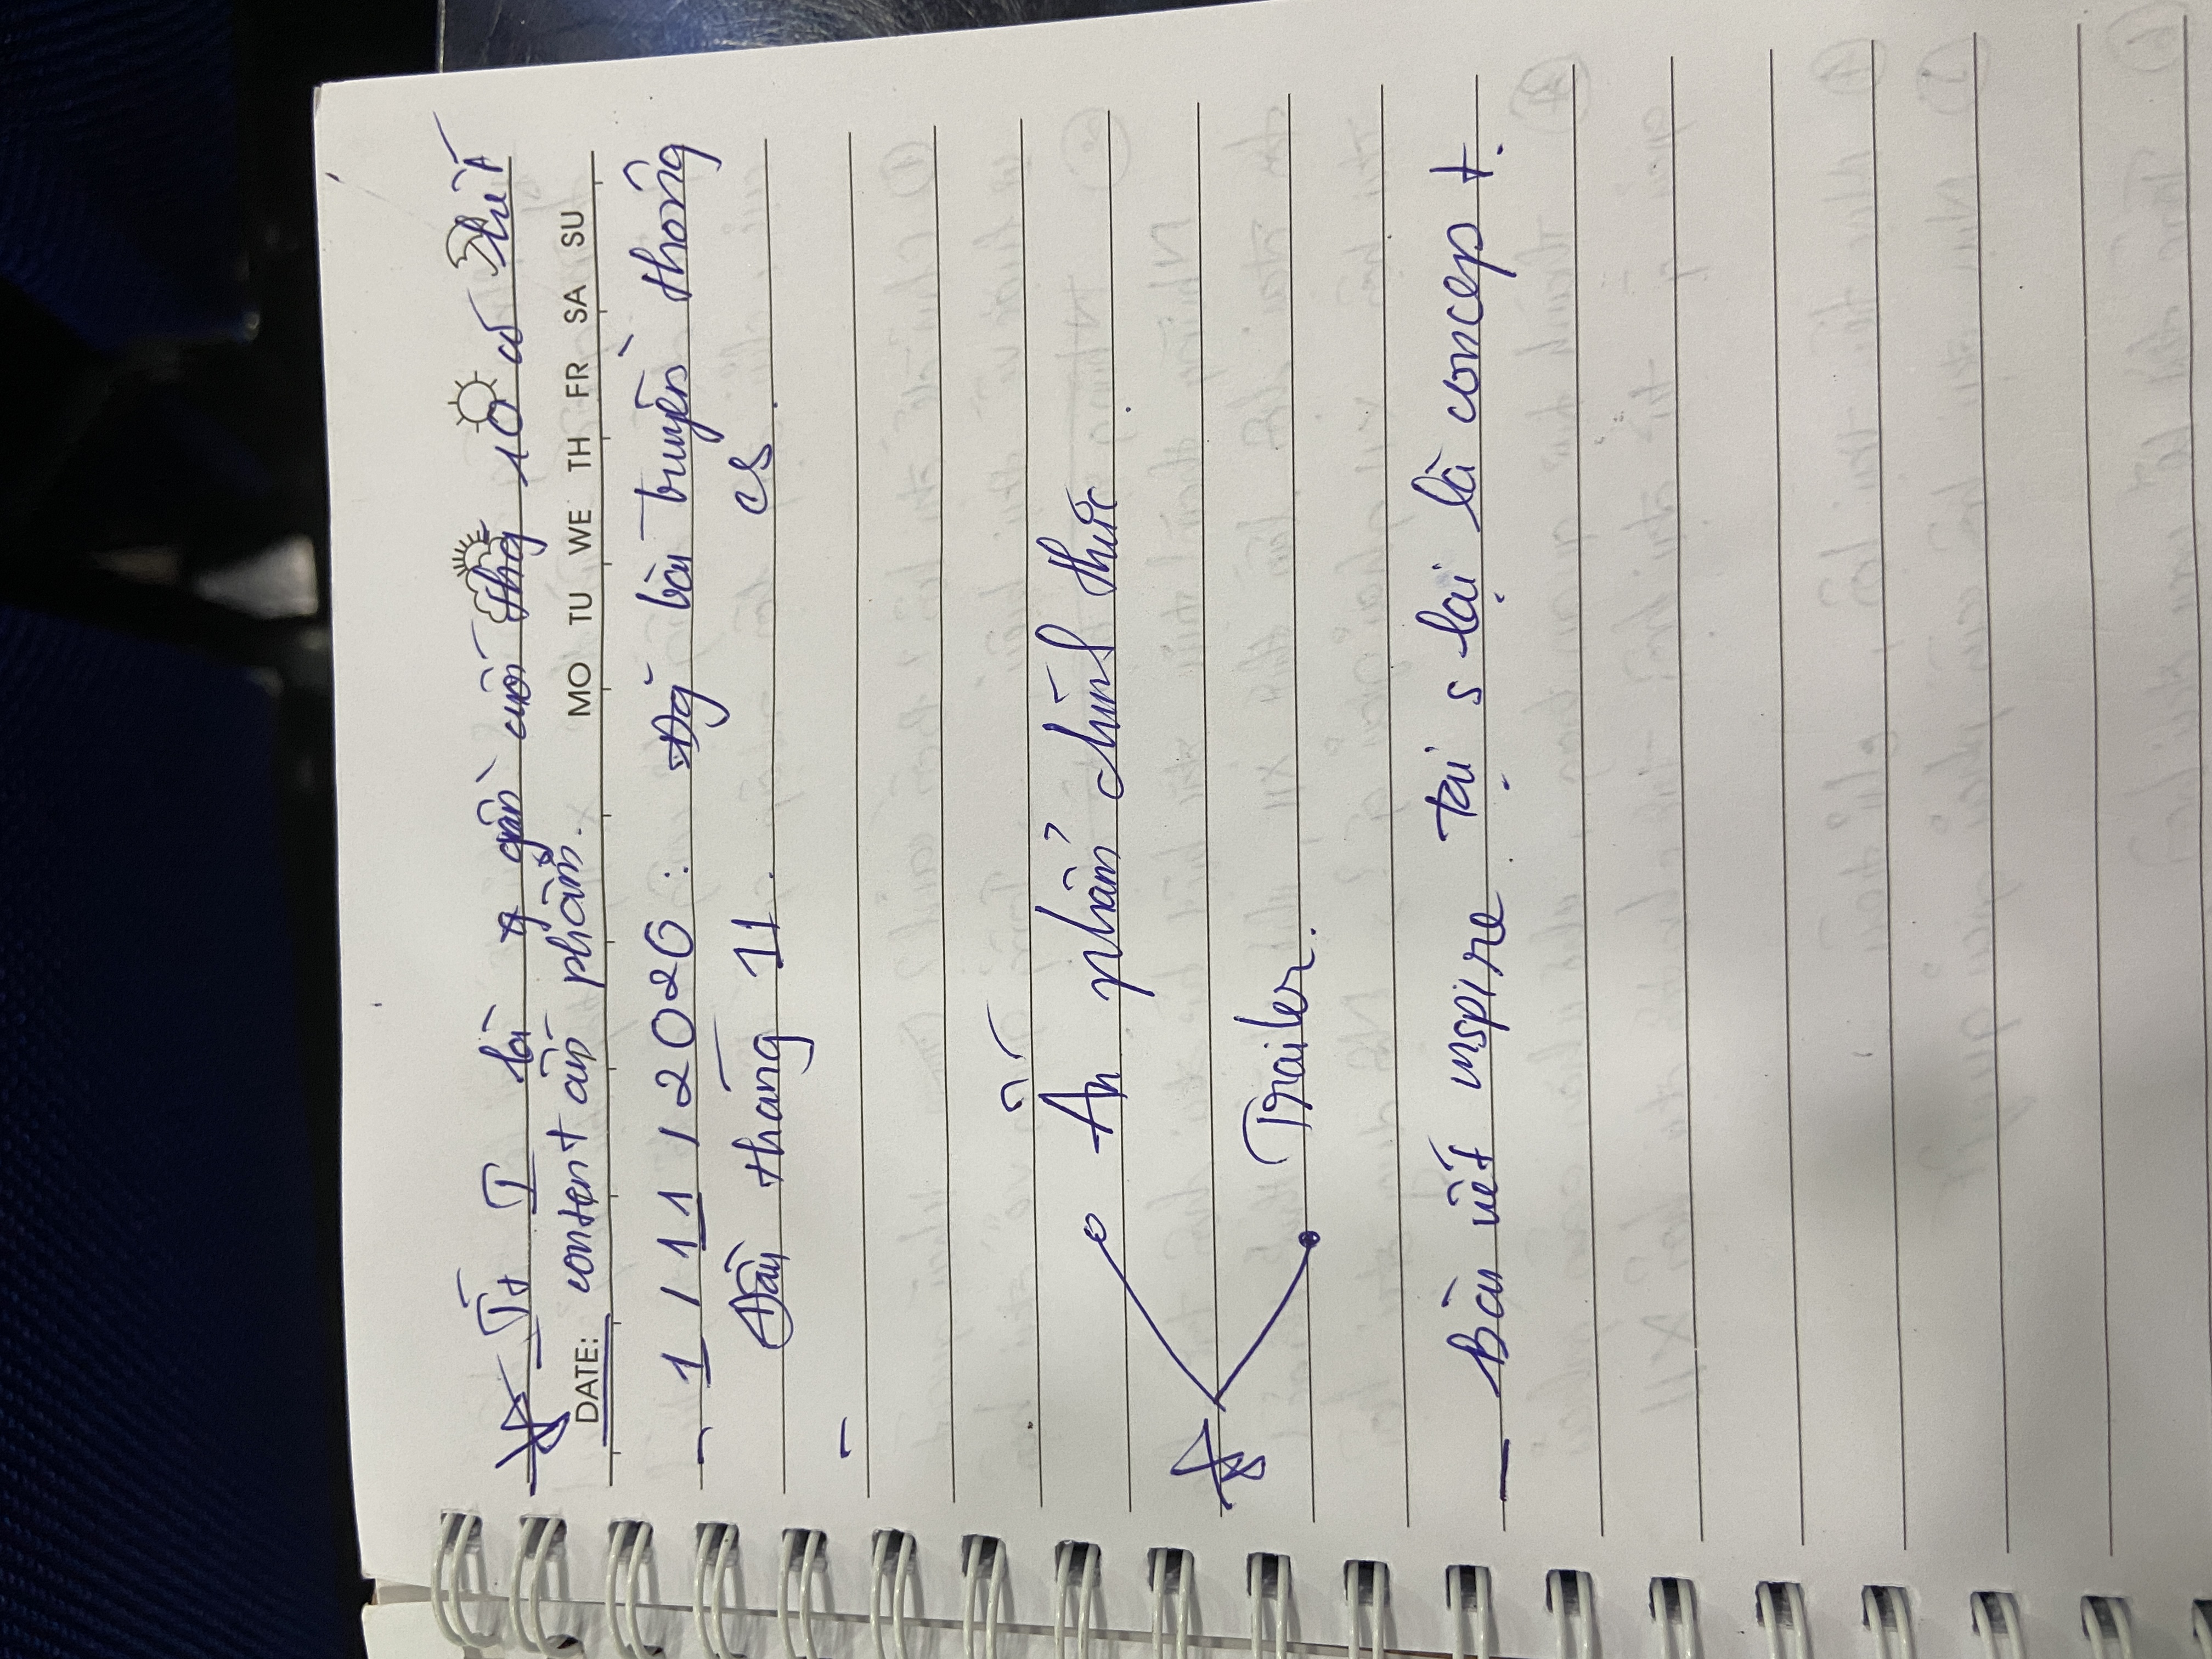 Tt I là gần cuối thg 10 có hết
DATE: content ấn phẩm. MO TU WE TH FR SA SU
- 1/11/2020: Đg bài truyền thông
Đầu tháng 11. CS.
-
Ấn phẩm chính thức.
Trailer.
- Bài viết inspire tại s lại là concept.